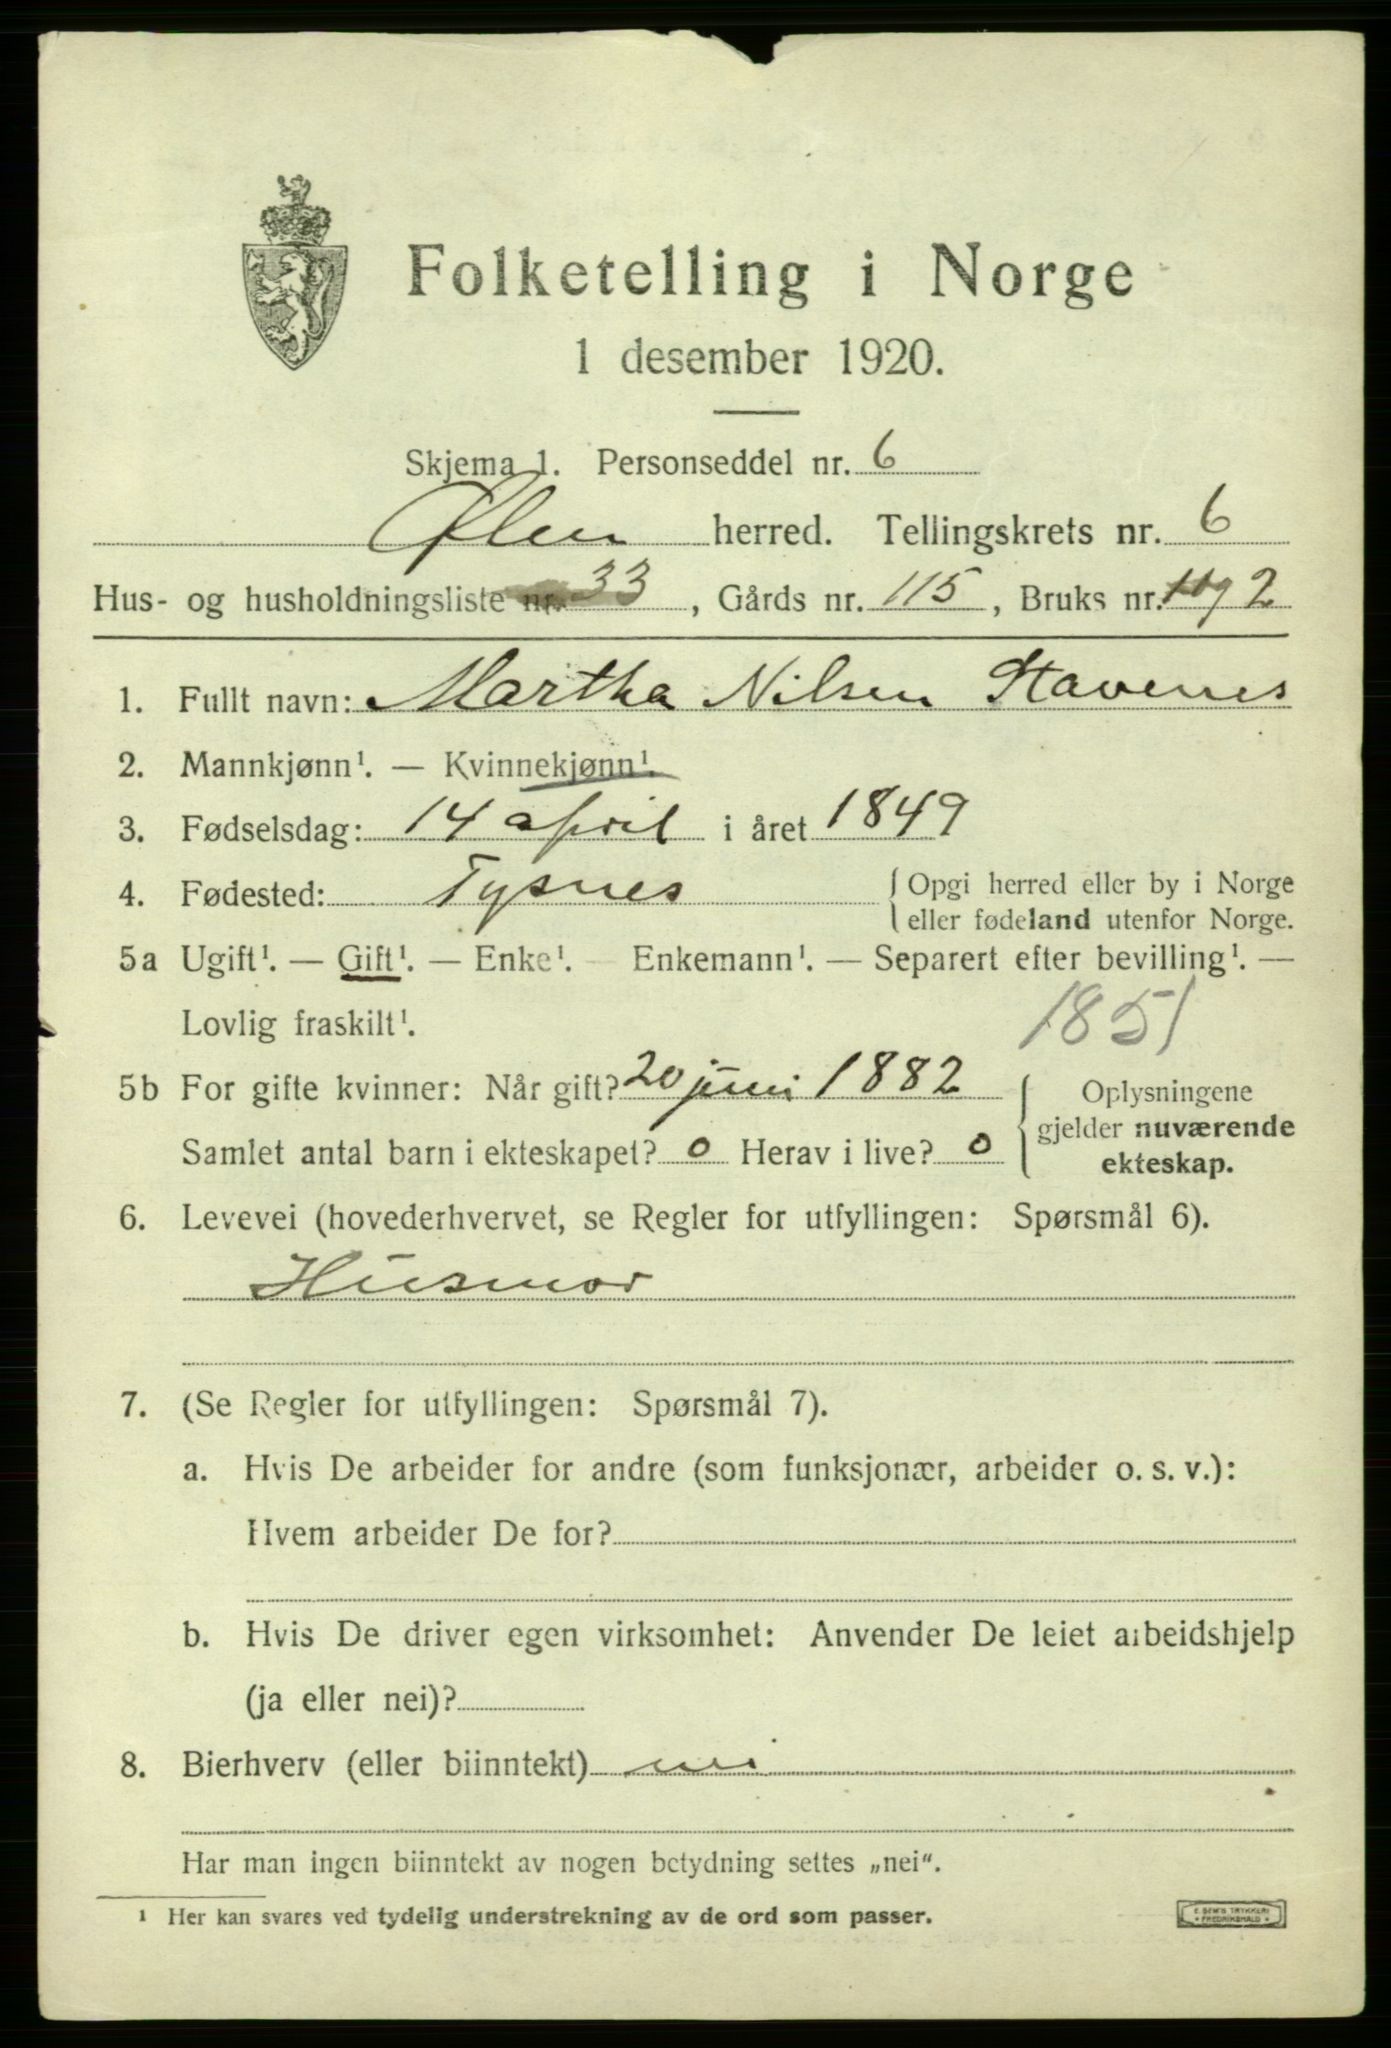 Folketelling i Norge
1 desember 1920.
Skjema 1. Personseddel nr. 6
Ølen herred. Tellingskrets nr. 6
Hus- og husholdningsliste nr. 33, Gårds nr. 115, Bruks nr. 1 og 2
1. Fullt navn: Martha Nilsen Stavenes
2. Mannkjønn¹. — Kvinnekjønn¹.
3. Fødselsdag: 14 april i året 1849
4. Fødested: Tysnes { Opgi herred eller by i Norge
eller fødeland utenfor Norge.
5a Ugift¹. — Gift¹. — Enke¹. — Enkemann¹. — Separert efter bevilling¹. —
Lovlig fraskilt¹. 1851
5b For gifte kvinner: Når gift? 20 juni 1882 { Oplysningene
gjelder nuværende
Samlet antal barn i ekteskapet? 0 Herav i live? 0 ekteskap.
6. Levevei (hovederhvervet, se Regler for utfyllingen: Spørsmål 6).
Husmor
7. (Se Regler for utfyllingen: Spørsmål 7).
a. Hvis De arbeider for andre (som funksjonær, arbeider o. s. v.):
Hvem arbeider De for?
b. Hvis De driver egen virksomhet: Anvender De leiet arbeidshjelp
(ja eller nei)?
8. Bierhverv (eller biinntekt) nei
Har man ingen biinntekt av nogen betydning settes „nei“.
¹ Her kan svares ved tydelig understrekning av de ord som passer.
E. SEM'S TRYKKERI
* FREDRIKSHALD *